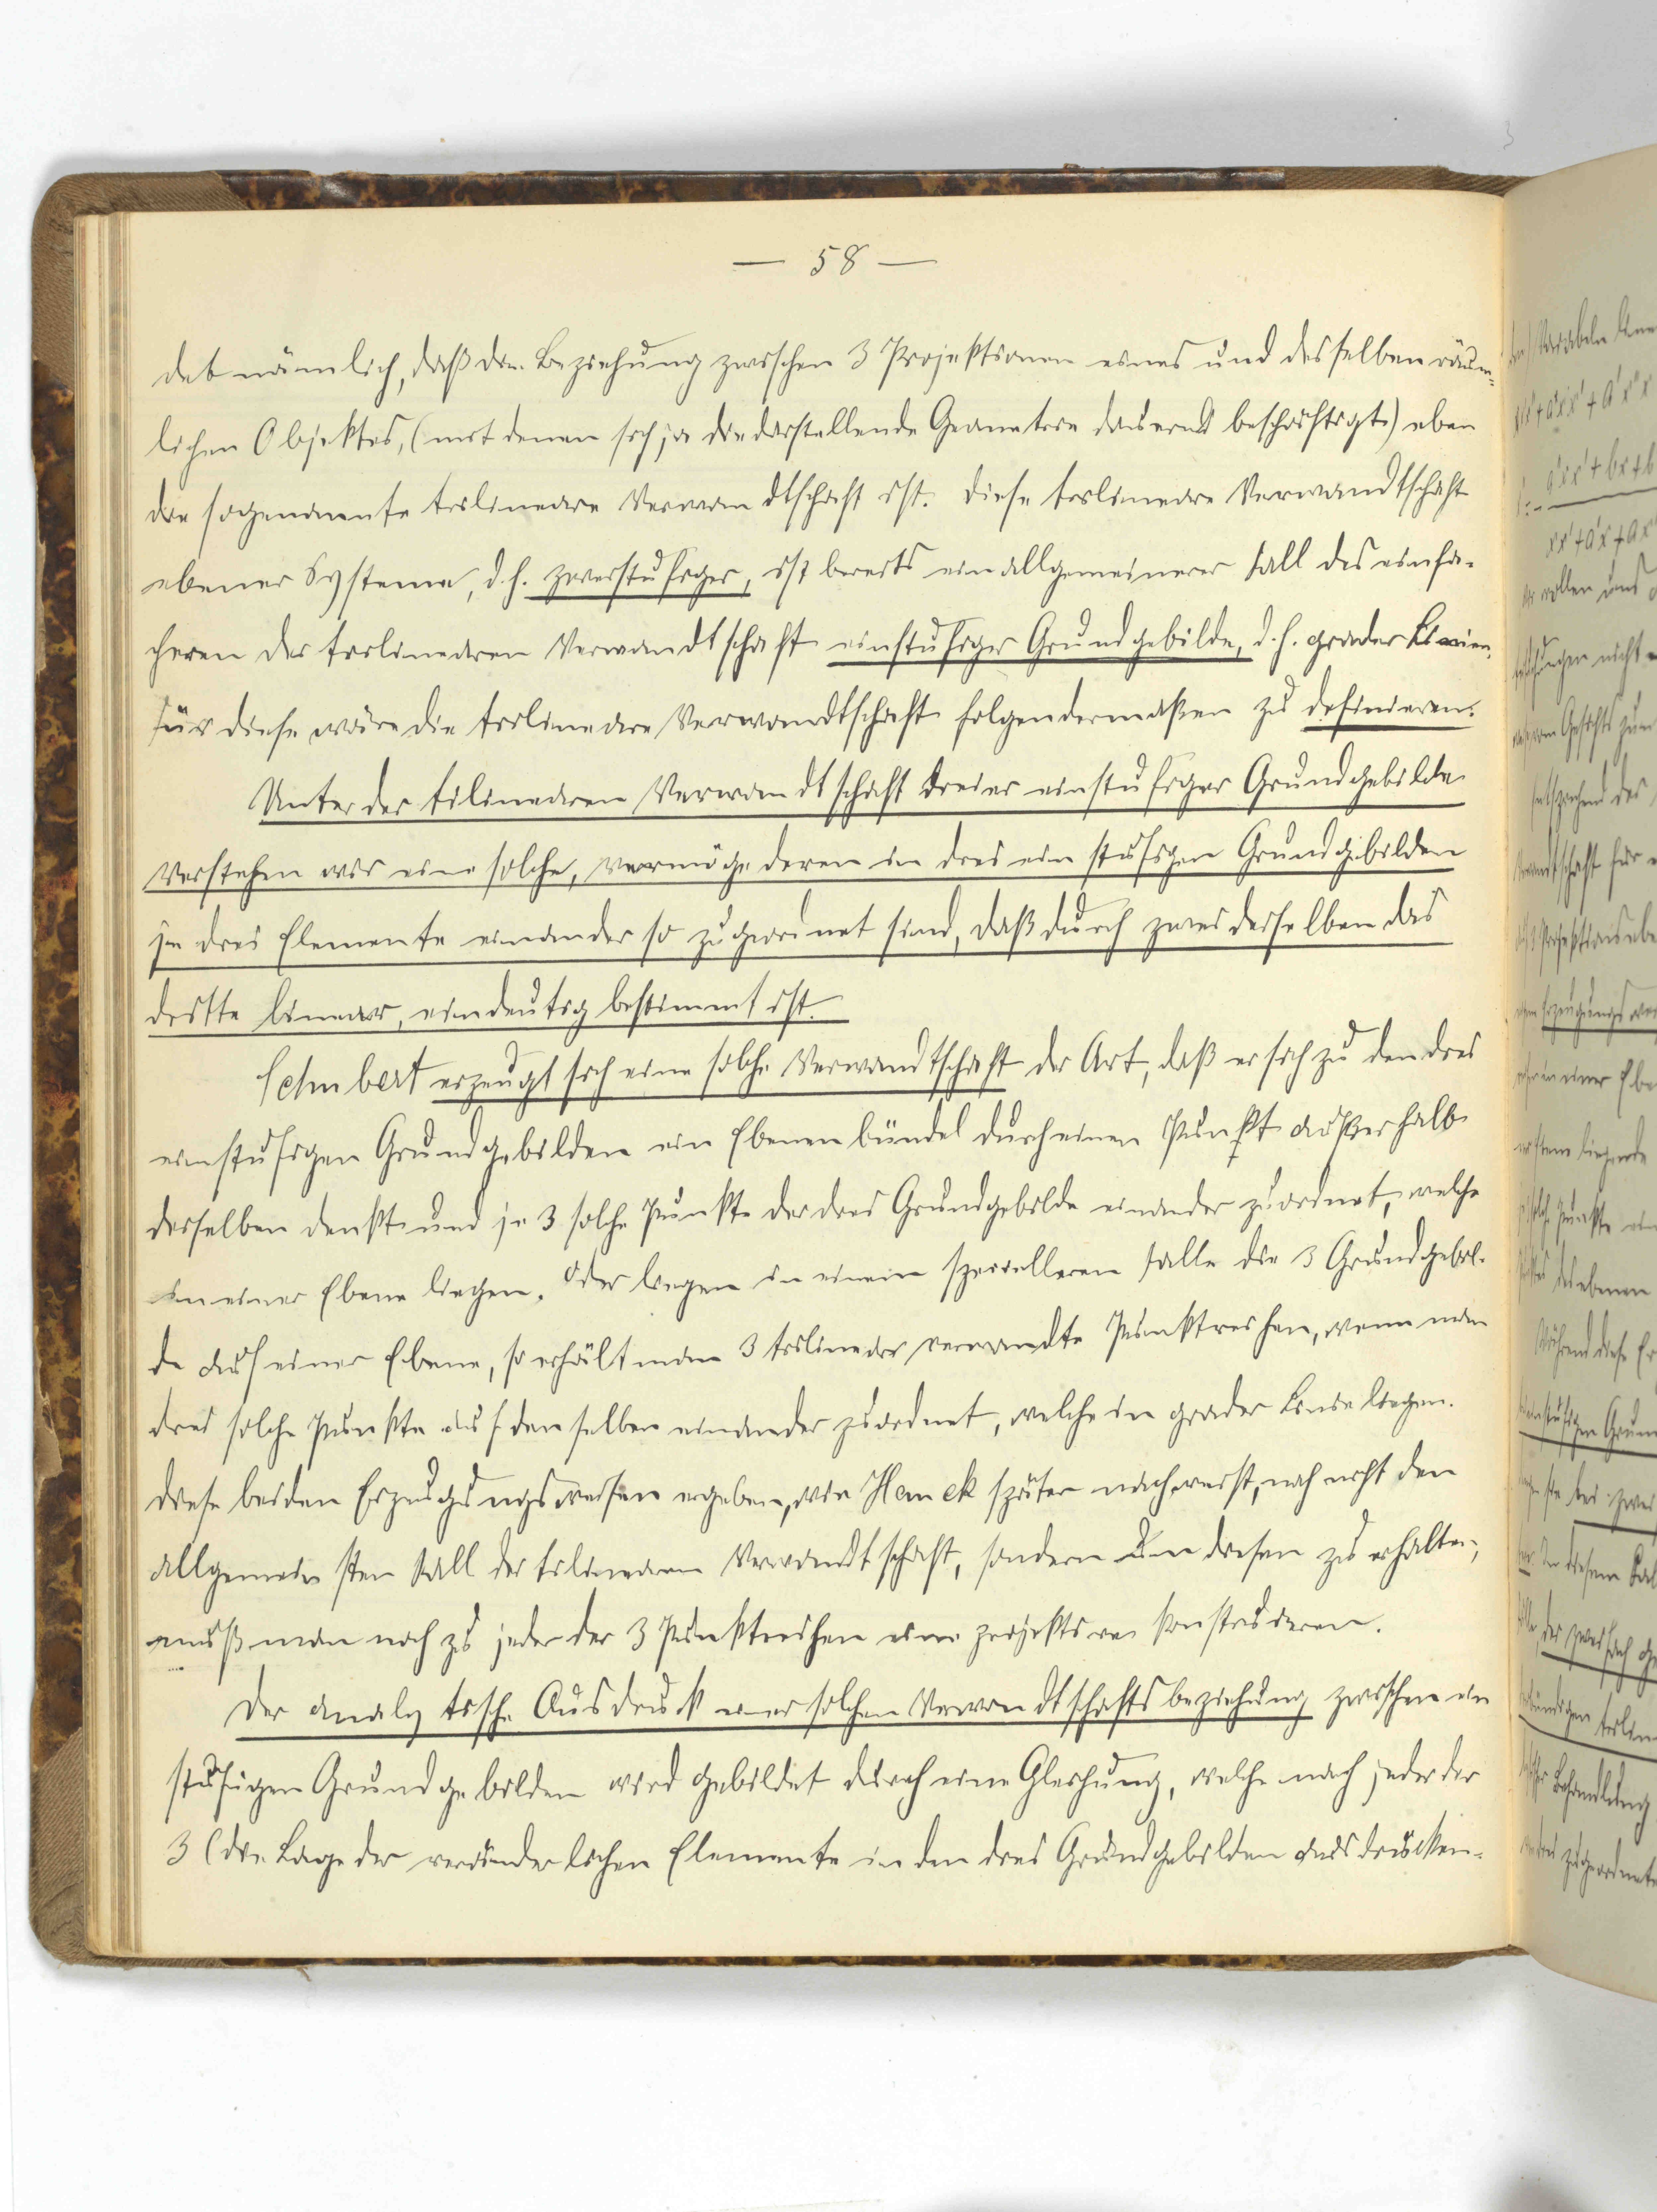 — 58 —
det nämlich, daß die Beziehung zwischen 3 Projektionen eines und desselben räum-
lichen Objektes, (mit denen sich ja die darstellende Geometrie dauernd beschäftigt) eben
die sogenannte trilineare Verwandtschaft ist. Diese trilineare Verwandtschaft
ebener Systeme, d.h. zweistufiger, ist bereits ein allgemeinerer Fall des einfa-
cheren der trilinearen Verwandtschaft einstufiger Grundgebilde, d.h. grader Linien,
für diese wäre die trilineare Verwandtschaft folgendermaßen zu definieren:
Unter der trilinearen Verwandtschaft dreier einstufiger Grundgebilde
verstehen wir eine solche, vermöge deren in drei einstufigen Grundgebilden
je drei Elemente einander so zugeordnet sind, daß durch zwei derselben das
dritte linear, eindeutig bestimmt ist.
Schubert erzeugt sich eine solche Verwandtschaft der Art, daß er sich zu den drei
einstufigen Grundgebilden ein Ebenenbündel durch einen Punkt außerhalb
derselben denkt und je 3 solche Punkte der drei Grundgebilde einander zuordnet, welche
in einer Ebene liegen. Oder liegen in einem specielleren Falle die 3 Grundgebil-
de auf einer Ebene, so erhält man 3 trilinear verwandte Punktreihen, wenn man
drei solche Punkte auf denselben einander zuordnet, welche in grader Linie liegen.
Diese beiden Erzeugungsweisen ergeben, wie Hauck später nachweist, noch nicht den
allgemeinsten Fall der trilinearen Verwandtschaft, sondern um diesen zu erhalten,
muß man noch zu jeder der 3 Punktreihen eine projektive konstruieren.
Der analytische Ausdruck einer solchen Verwandtschaftsbeziehung zwischen ein
stufigen Grundgebilden wird gebildet durch eine Gleichung, welche nach jeder der
3 (die Lage der veränderlichen Elemente in den drei Grundgebilden ausdrücken-